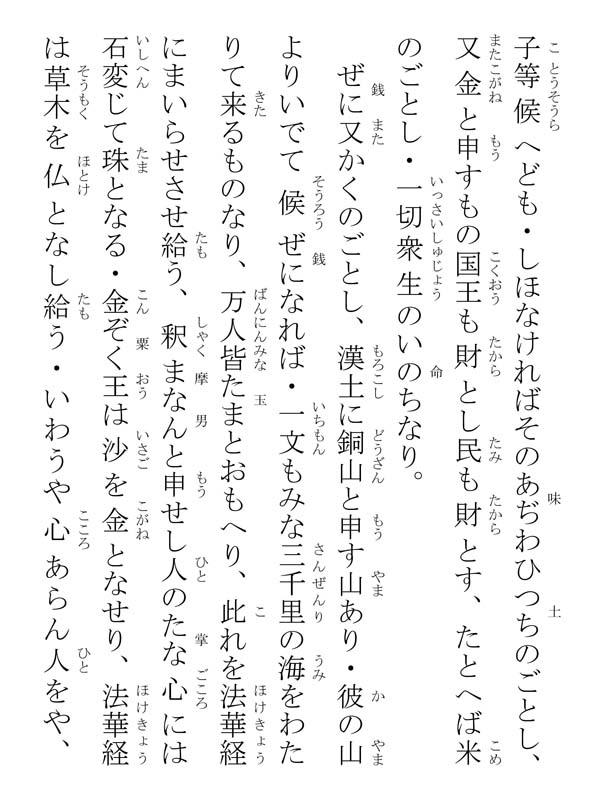 子等候へども・しほなければそのあぢわひつちのごとし、
又金と申すもの国王も財とし民も財とす、たとへば米
のごとし・一切衆生のいのちなり。
ぜに又かくのごとし、漢土に銅山と申す山あり・彼の山
よりいでて候ぜになれば・一文もみな三千里の海をわた
りて来るものなり、万人皆たまとおもへり、此れを法華経
にまいらせさせ給う、釈まなんと申せし人のたな心には
石変じて珠となる・金ぞく王は沙を金となせり、法華経
は草木を仏となし給う・いわうや心あらん人をや、